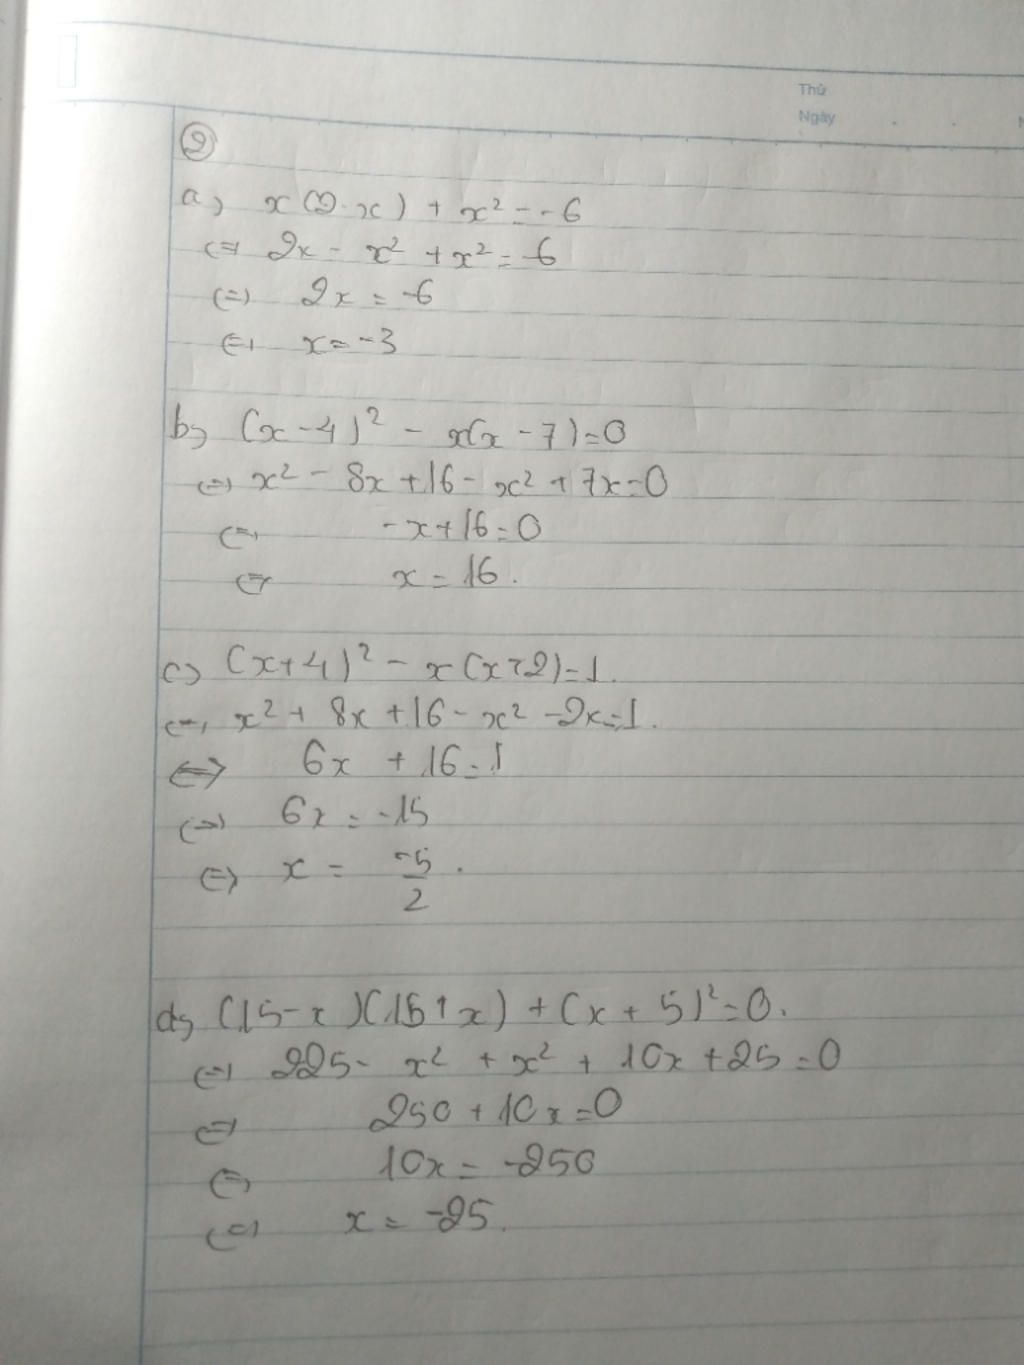 Thứ
Ngày
②
a) x(2-x) + x² = -6
⇔ 2x - x² + x² = -6
⇔ 2x = -6
⇔ x = -3
b) (x-4)² - x(x-7)=0
⇔ x² - 8x + 16 - x² + 7x = 0
⇔ -x+16=0
⇔ x = 16.
c) (x+4)² - x(x+2)=1.
⇔ x² + 8x + 16 - x² - 2x = 1.
⇔ 6x + 16 = 1
⇔ 6x = -15
⇔ x = -5/2.
d) (15-x)(15+x) + (x+5)² = 0.
⇔ 225 - x² + x² + 10x + 25 = 0
⇔ 250 + 10x = 0
⇔ 10x = -250
⇔ x = -25.